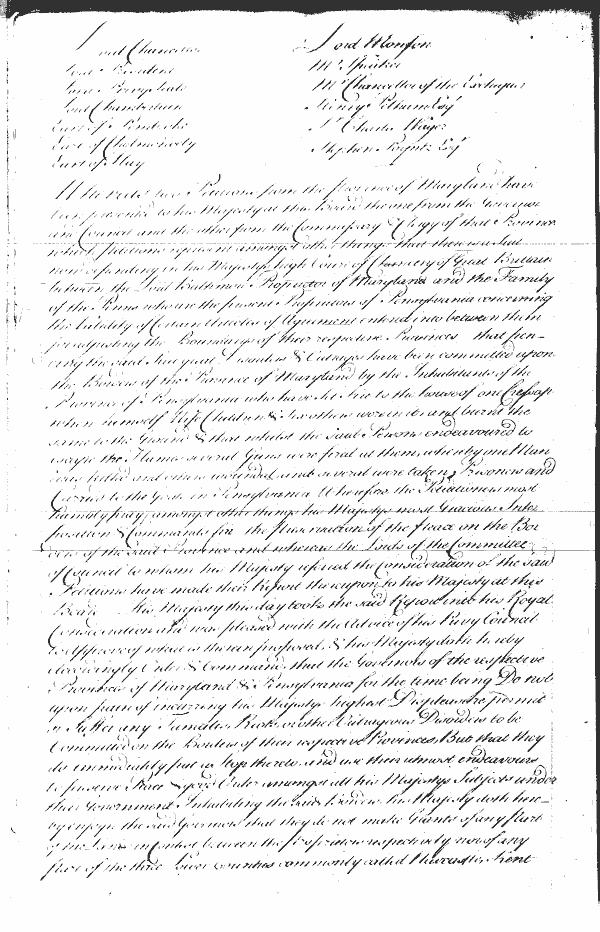 Lord Chancellor
Lord President
Lord Privy Seal
Lord Chamberlain
Earl of Pembroke
Earl of Cholmondeley
Earl of Ilay
Lord Monson
Mr. Speaker
Mr. Chancellor of the Exchequer
Henry Pelham Esqr
Sr. Charles Wager
Stephen Poyntz Esqr
Whereas two Petitions from the Province of Maryland have
been presented to his Majesty at this Board the one from the Governor
and Council and the other from the Commissary & Clergy of that Province
which Petitions represent amongst other things that there was Suit
now depending in his Majestys high Court of Chancery of Great Brittain
between the Lord Baltimore Propriator of Maryland and the Family
of the Penns who are the present Propriators of Pensylvania concerning
the Validity of Certain Articles of Agreement entered into between them
for adjusting the Boundarys of their respective Provinces that
the said &
the Borders of the Province of Maryland by the Inhabitants of the
Province of Pensylvania who have set fire to the house of one Cressap
when himself Wife Children & Six others were in it and burnt the
same to the Ground & that whilst the said Persons endeavoured to
escape the Flames several Guns were fired at them whereby one Man
was killed and others wounded and several were taken Prisoners and
Carried to the Goals in Pensylvania Wherefore the Petitioners most
humbly pray amongst other things his Majestys most Gracious Inter
position & Commands for the Preservation of the Peace on the Bor
ders of the said Province and whereas the Lords of the Committee
of Council to whom his Majesty referred the Consideration of the said
Petitions have made their Report thereupon to his Majesty at this
Board His Majesty this day took the said Report into his Royal
Consideration and was pleased with the Advice of his Privy Council
to Approve of what is therein proposed & his Majesty doth hereby
accordingly Order & Command that the Governors of the respective
Provinces of Maryland & Pensylvania for the time being Do not
upon pain of incurring his Majestys highest Displeasure permit
or Suffer any Tumults Riots or other Outrageous Disorders to be
Committed on the Borders of their respective Provinces, But that they
do immediately put a Stop thereto and use their utmost endeavours
to preserve Peace & good Order amongst all his Majestys Subjects under
their Government Inhabiting the said Borders his Majesty doth here-
by enjoyn the said Governors that they do not make Grants of any Part
of the Lands in contest between the Proprietors respectively nor of any
part of the three Lower Counties commonly called Newcastle, Kent